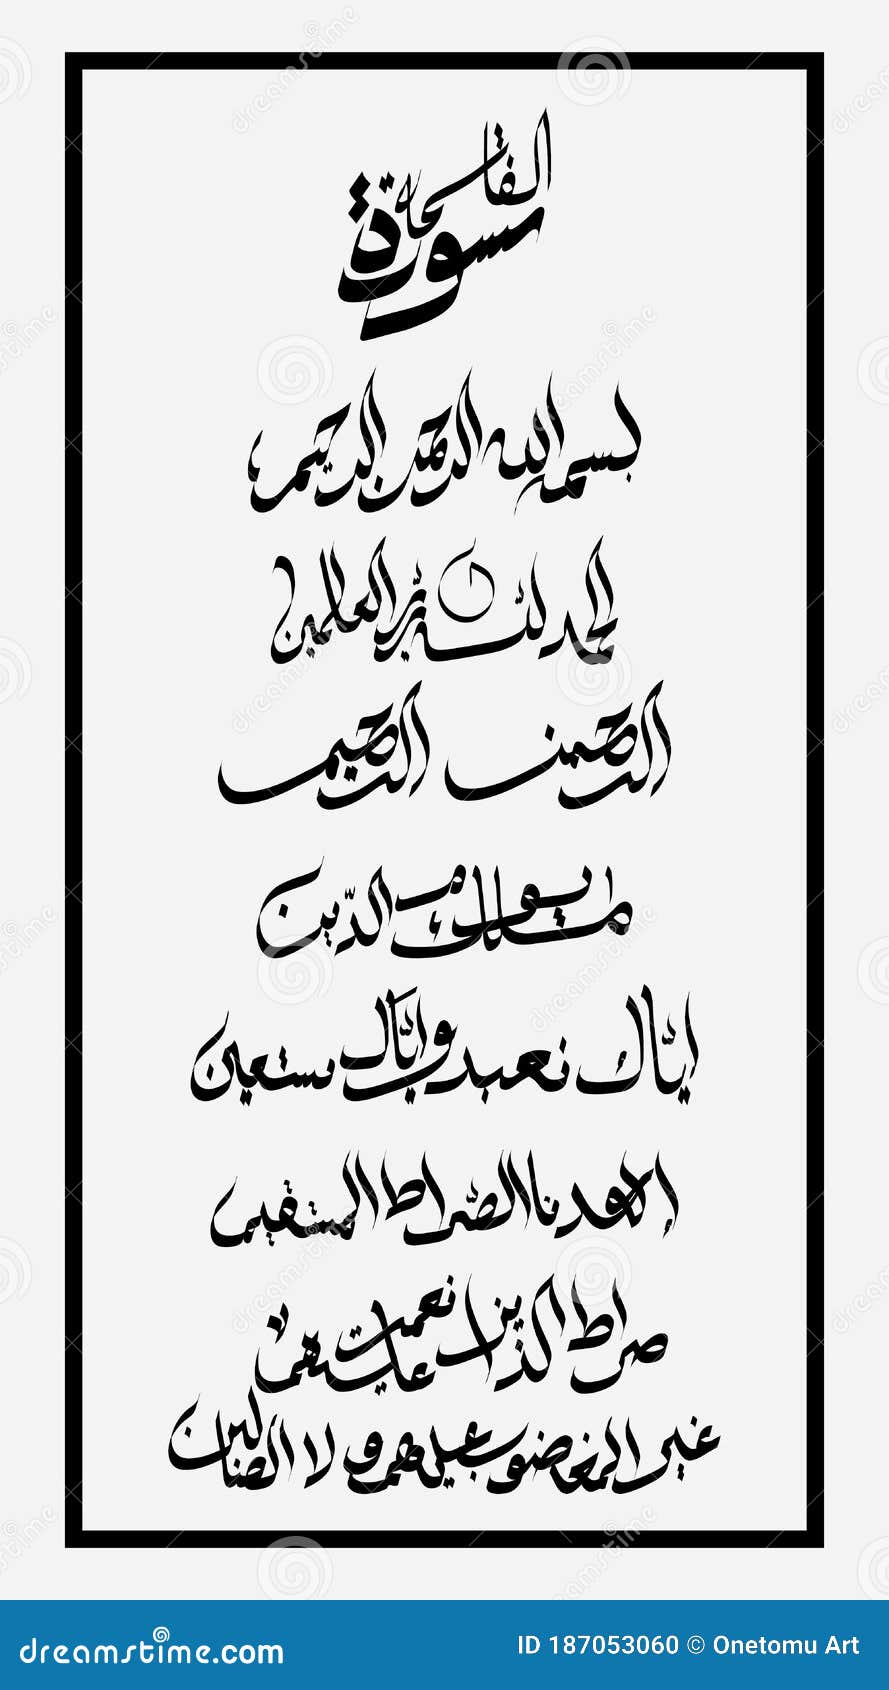 سورة الفاتحة
بسم الله الرحمن الرحيم
الحمد لله رب العالمين
الرحمن الرحيم
مالك يوم الدين
إياك نعبد وإياك نستعين
إهدنا الصراط المستقيم
صراط الذين انعمت عليهم
غير المغضوب عليهم ولا الضالين
dreamstime.com
ID 187053060 © Onetomu Art